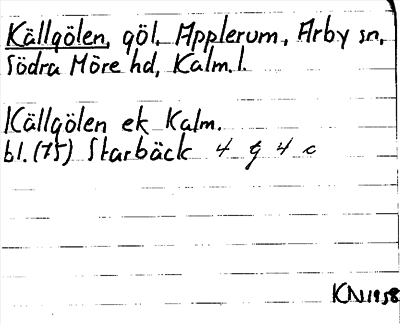 Källgölen, göl, Applerum, Arby sn,
Södra Möre hd, Kalm. l.
Källgölen ek Kalm.
bl. (75) Starbäck 4 g 4 c
KN 1958